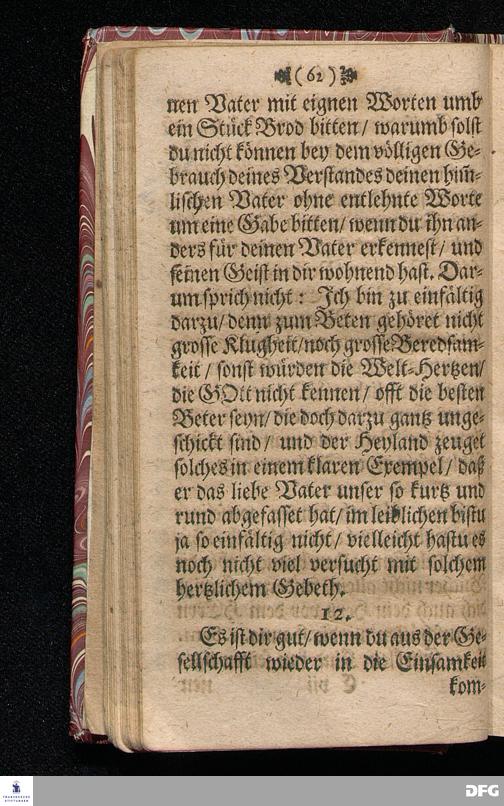 (62)
nen Vater mit eignen Worten umb
ein Stück Brod bitten/ warumb solst
du nicht können bey dem völligen Ge-
brauch deines Verstandes deinen him̃-
lischen Vater ohne entlehnte Worte
um eine Gabe bitten/ wenn du ihn an-
ders für deinen Vater erkennest/ und
seinen Geist in dir wohnend hast. Dar-
um sprich nicht: Ich bin zu einfältig
darzu/ denn zum Beten gehöret nicht
grosse Klugheit/ noch grosse Beredsam-
keit/ sonst würden die Welt-Hertzen/
die GOtt nicht kennen/ offt die besten
Beter seyn/ die doch darzu gantz unge-
schickt sind/ und der Heyland zeuget
solches in einem klaren Exempel/ daß
er das liebe Vater unser so kurtz und
rund abgefasset hat/ im leiblichen bistu
ja so einfältig nicht/ vielleicht hastu es
noch nicht viel versucht mit solchem
hertzlichem Gebeth.
12.
Es ist dir gut/ wenn du aus der Ge-
sellschafft wieder in die Einsamkeit
kom-
FRANCKESCHE
STIFTUNGEN
DFG